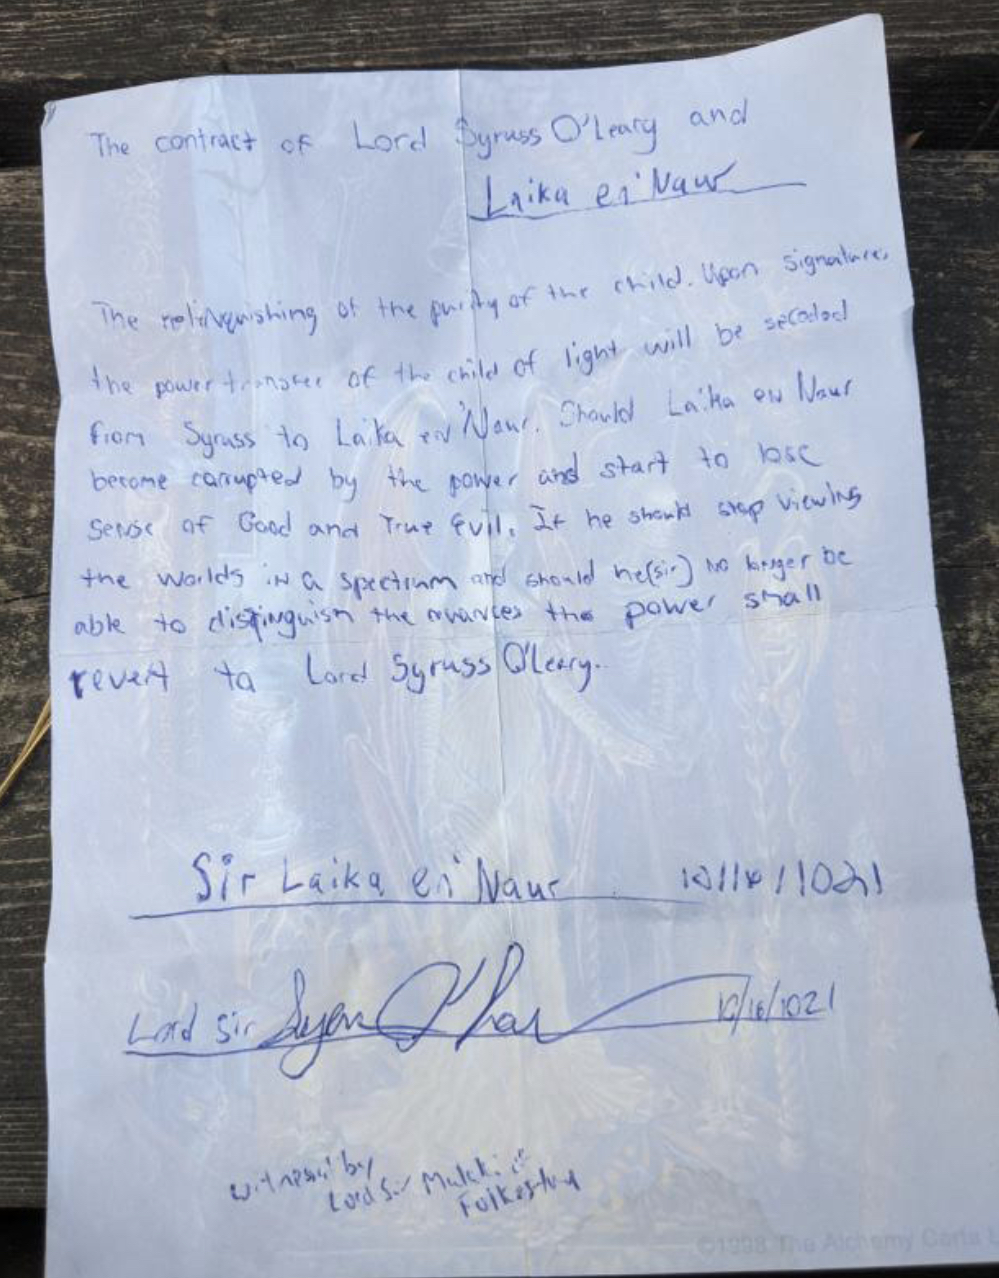 The contract of Lord Syruss O'Leary and
Laika en'Naur
The relinquishing of the purity of the child. Upon signature,
the power transfer of the child of light will be
from Syruss to Laika en'Naur. Should Laika en Naur
become corrupted by the power and start to lose
sense of Good and True Evil. If he should stop viewing
the worlds in a spectrum and should he(sir) no longer be
able to distinguish the nuances the power shall
revert to Lord Syruss O'Leary.
Sir Laika en'Naur 10/16/1021
Lord Sir 10/16/1021
witnessed by
Lord Sir
©1998 The Alchemy Carta L